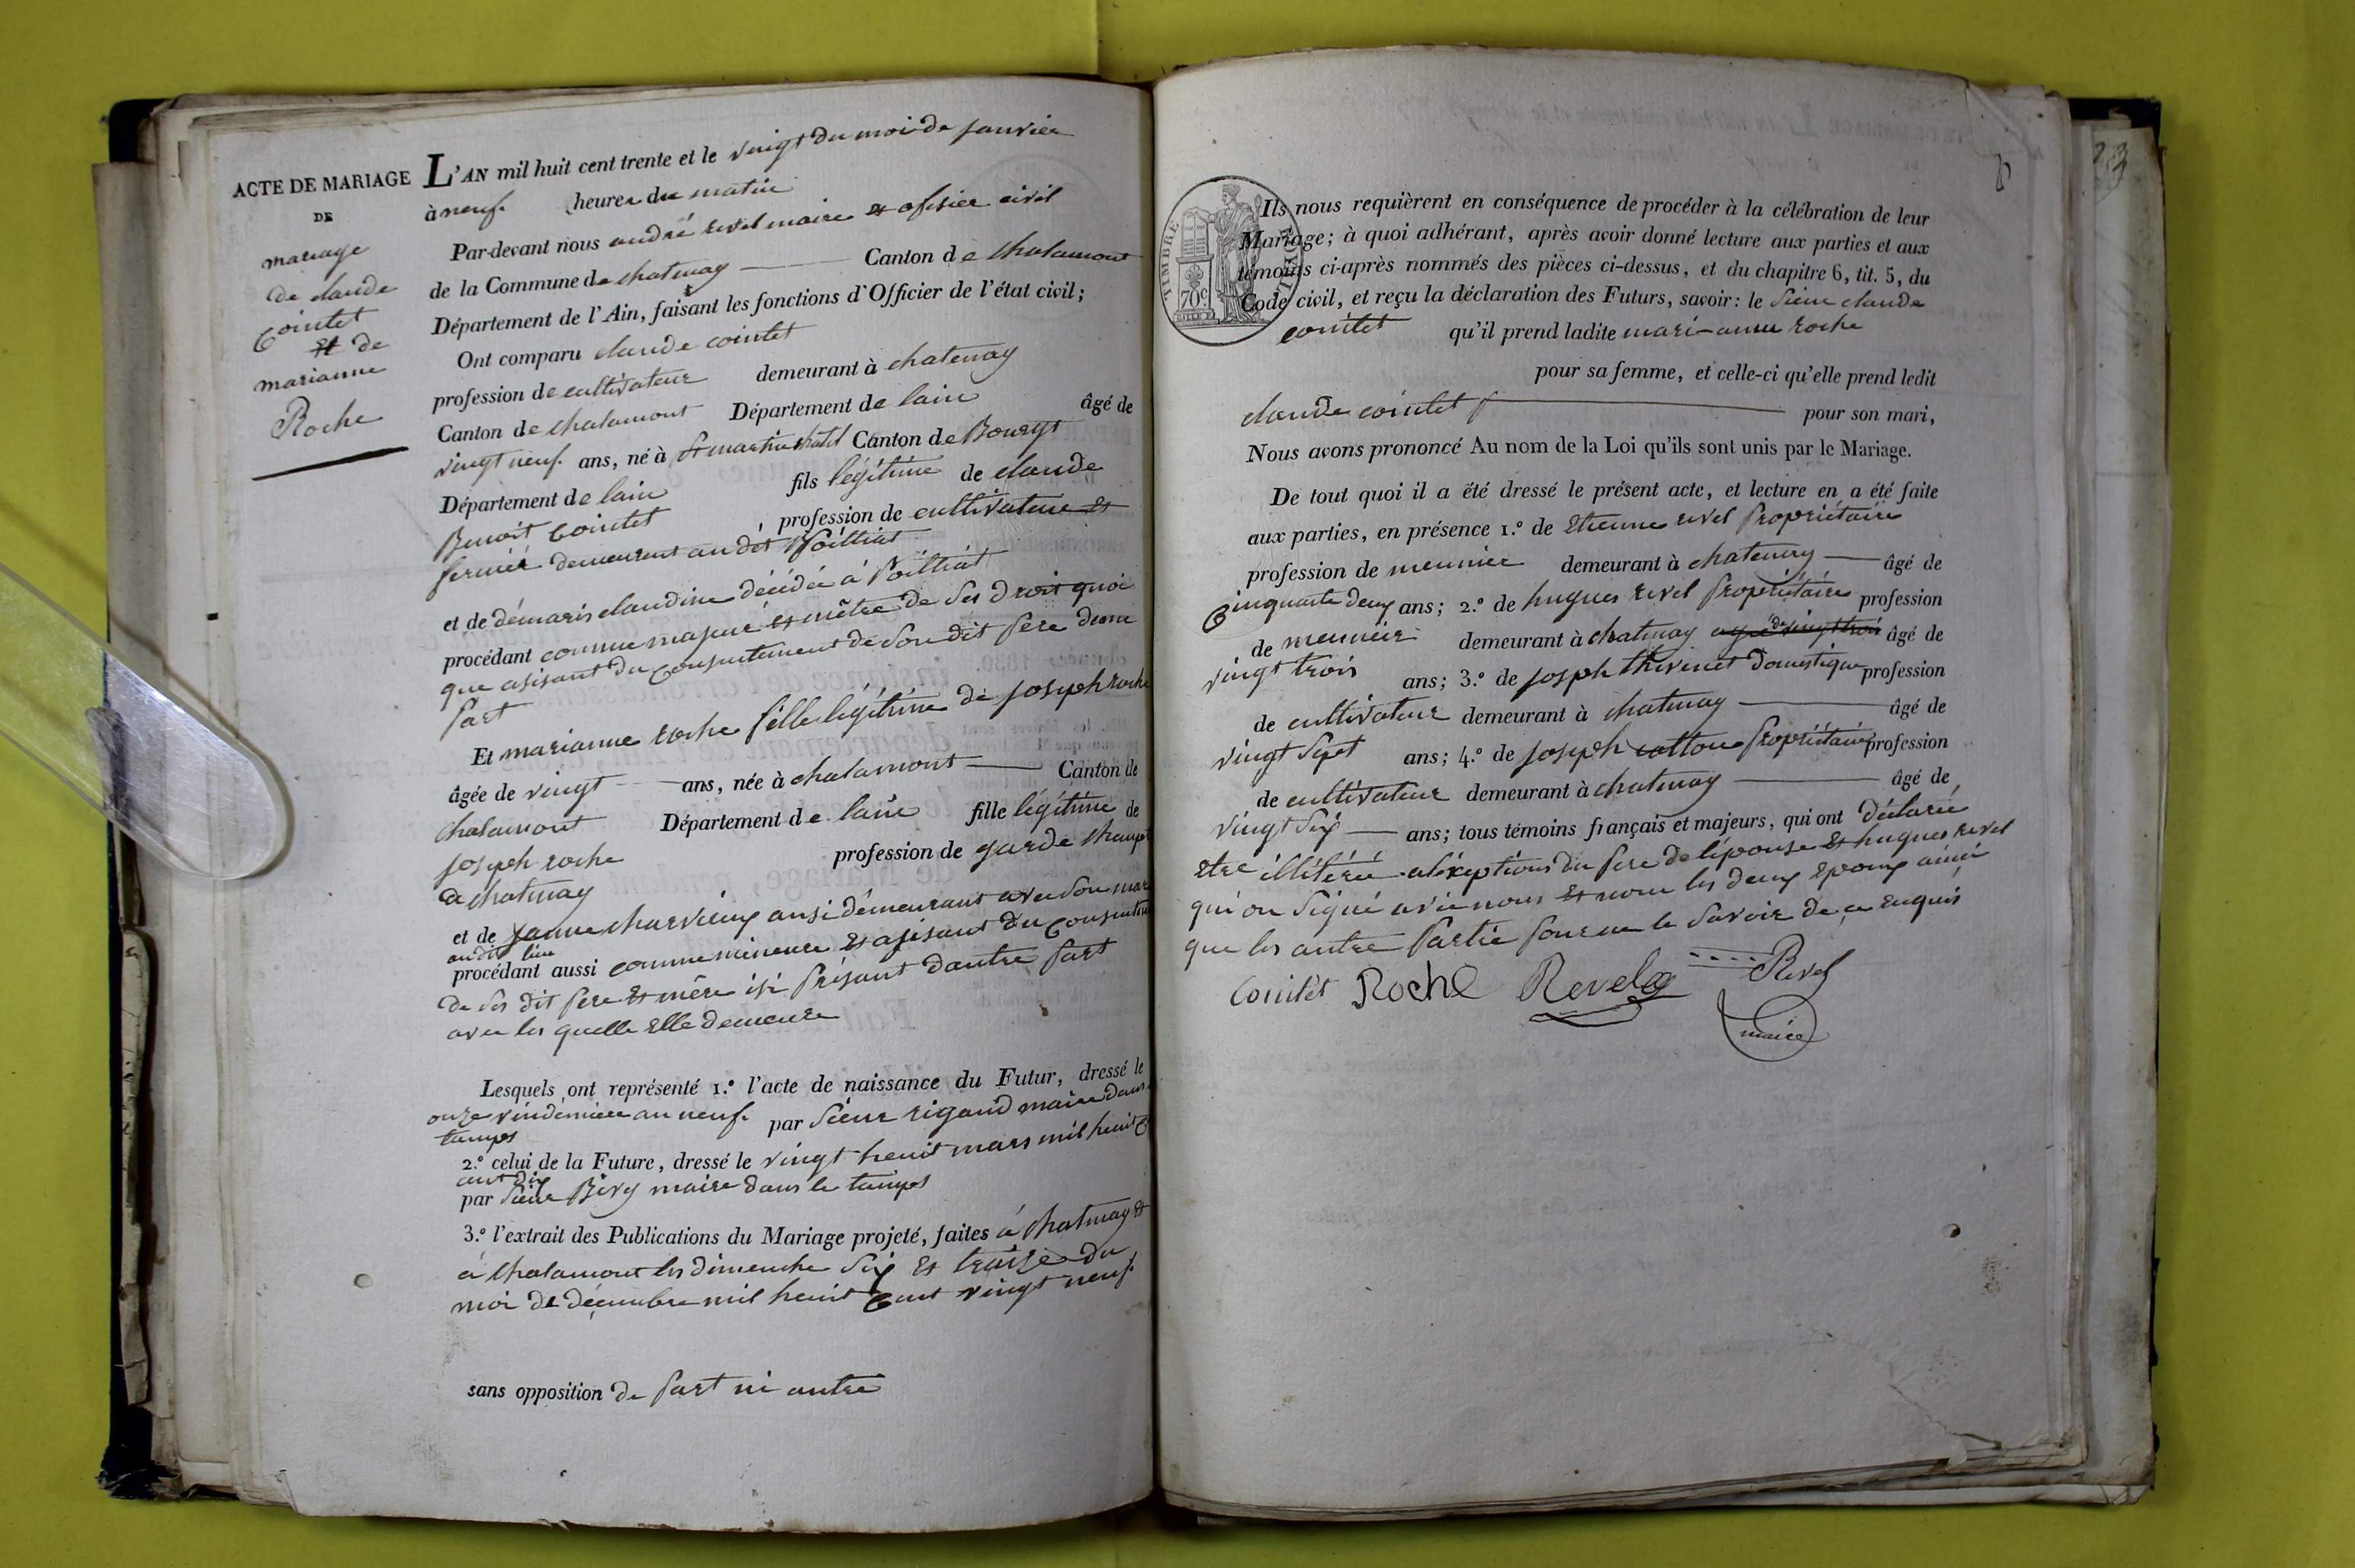 ACTE DE MARIAGE
DE
mariage
de claude
Cointet
Et de
marianne
Roche
L'AN mil huit cent trente et le vingt du moi de janvier
à neuf heures du matin
Par-devant nous andré revel maire et ofisier civil
de la Commune de chatenay Canton de chalamont
Département de l'Ain, faisant les fonctions d'Officier de l'état civil;
Ont comparu claude cointet
profession de cultivateur demeurant à chatenay
Canton de chalamont Département de lain âgé de
vingt neuf ans, né à st martin chatel Canton de Bourgt
Département de lain fils légitime de claude
Benoit Cointet profession de cultivateur et
fermier demeurent au dit Poilliat
et de démaris claudine décédée à Poilliat
procédant comme majeur et mêtre de ses droit quoi
que asisant du Consentement de son dit pere dune
part
Et marianne roche fille légitime de joseph roche
âgée de vingt ans, née à chalamont Canton de
chalamont Département de lain fille légitime de
joseph roche profession de garde champt
a chatenay
et de janne charvieux ausi démeurant avec son mari
audit lieu
procédant aussi comme mineure et asisant du Consentem
de ses dit pere et mère isi présant dautre part
avec les quelle elle demeure
Lesquels ont représenté 1.º l'acte de naissance du Futur, dressé le
onze vindémiere an neuf par sieur rigaud maire dans
tamps
2.º celui de la Future, dressé le vingt heuit mars mil heuit C
ant dix
par sieur Bévy maire dans le tamps
3.º l'extrait des Publications du Mariage projeté, faites à chatenay et
à chalamont les dimenche six et traize du
moi de décembre mil heuit Cent vingt neuf
sans opposition de part ni autre
TIMBRE ROYAL
70c
Ils nous requièrent en conséquence de procéder à la célébration de leur
Mariage; à quoi adhérant, après avoir donné lecture aux parties et aux
témoins ci-après nommés des pièces ci-dessus, et du chapitre 6, tit. 5, du
Code civil, et reçu la déclaration des Futurs, savoir: le sieur claude
cointet qu'il prend ladite mari-anne roche
pour sa femme, et celle-ci qu'elle prend ledit
claude cointet pour son mari,
Nous avons prononcé Au nom de la Loi qu'ils sont unis par le Mariage.
De tout quoi il a été dressé le présent acte, et lecture en a été faite
aux parties, en présence 1.º de Etienne revel propriétaire
profession de meunier demeurant à chatenay âgé de
Cinquante deux ans; 2.º de hugues revel propriétaire profession
de meunier demeurant à chatenay agé de vingt trois âgé de
vingt trois ans; 3.º de joseph thévenet domestique profession
de cultivateur demeurant à chatenay âgé de
vingt sept ans; 4.º de joseph cottone propriétaire profession
de cultivateur demeurant à chatenay âgé de
vingt six ans; tous témoins français et majeurs, qui ont déclaré
etre illitéré aléxeptions du pere de lépouse et hugues revel
qui on signé avec nous et nom les deux epoux ainsi
que les autre partie pour ne le savoir de ce enquis
Cointet Roche Revel Revel
maire